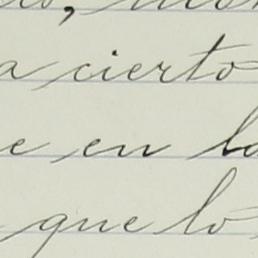 a cierto
e en la
que lo